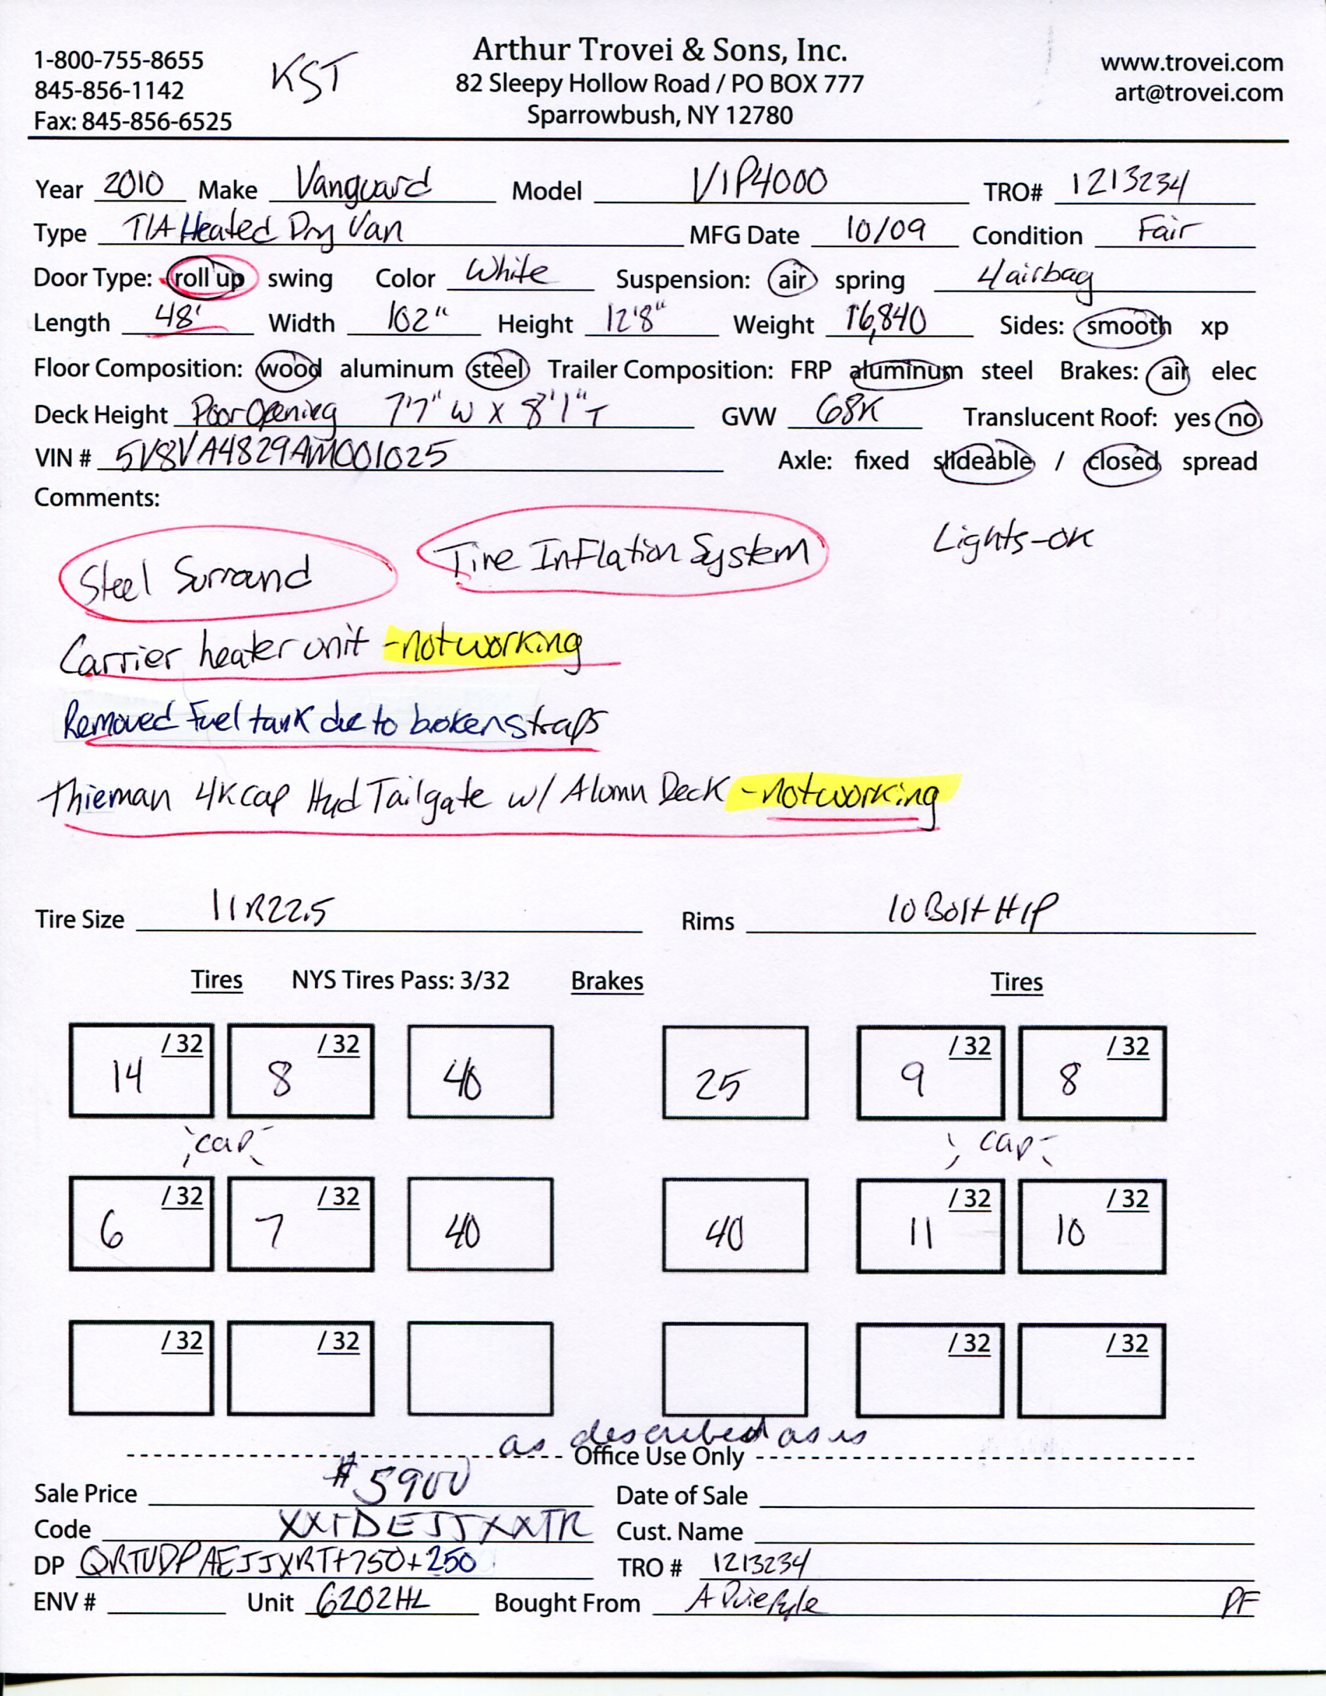 1-800-755-8655
845-856-1142
Fax: 845-856-6525
KST
Arthur Trovei & Sons, Inc.
82 Sleepy Hollow Road / PO BOX 777
Sparrowbush, NY 12780
www.trovei.com
art@trovei.com
Year 2010 Make Vanguard Model VIP4000 TRO# 1213234
Type T/A Heated Dry Van MFG Date 10/09 Condition Fair
Door Type: roll up swing Color White Suspension: air spring 4 airbag
Length 48' Width 102" Height 12'8" Weight 16,840 Sides: smooth xp
Floor Composition: wood aluminum steel Trailer Composition: FRP aluminum steel Brakes: air elec
Deck Height Door Opening 7'7" W x 8'1" T GVW 68K Translucent Roof: yes no
VIN # 5V8VA4829AM001025 Axle: fixed slideable / closed spread
Comments:
Steel Surround Tire Inflation System Lights-ok
Carrier heater unit - not working
Removed Fuel tank due to broken straps
Thieman 4K cap Hyd Tailgate w/ Alumn Deck - not working
Tire Size 11R22.5 Rims 10 Bolt H/P
Tires NYS Tires Pass: 3/32 Brakes Tires
14 /32 8 /32 40 25 9 /32 8 /32
cap cap
6 /32 7 /32 40 40 11 /32 10 /32
/32 /32 /32 /32
as described as is
Office Use Only
Sale Price $5900 Date of Sale
Code Cust. Name
DP +750+250 TRO # 1213234
ENV # Unit 6202HL Bought From PF